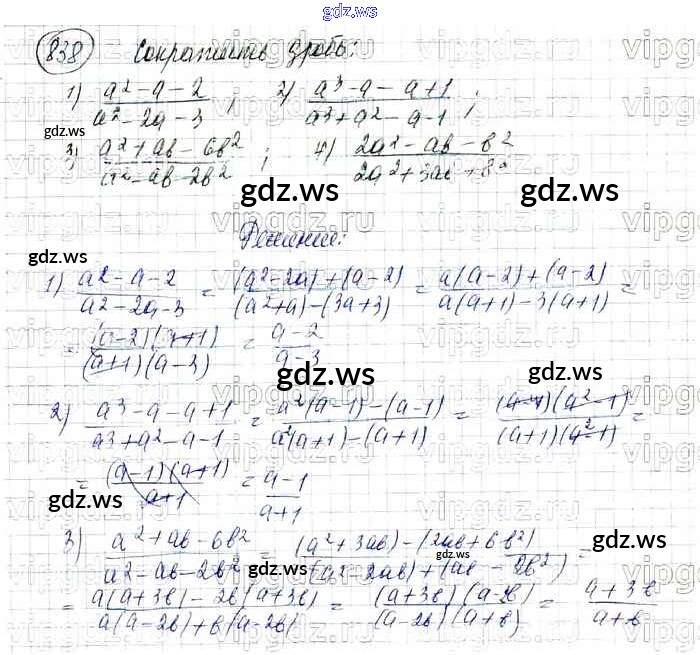 gdz.ws
838 Сократить дробь:
1) (a² - a - 2)/(a² - 2a - 3) ; 2) (a³ - a - a + 1)/(a³ + a² - a - 1) ;
gdz.ws
3) (a² + ab - 6b²)/(a² - ab - 2b²) ; 4) (2a² - ab - b²)/(2a² + 3ab + b²)
gdz.ws gdz.ws
Решение:
1) (a² - a - 2)/(a² - 2a - 3) = ((a² - 2a) + (a - 2))/((a² + a) - (3a + 3)) = (a(a - 2) + (a - 2))/(a(a + 1) - 3(a + 1)) =
= ((a - 2)(a + 1))/((a + 1)(a - 3)) = (a - 2)/(a - 3)
gdz.ws gdz.ws
2) (a³ - a - a + 1)/(a³ + a² - a - 1) = (a²(a - 1) - (a - 1))/(a²(a + 1) - (a + 1)) = ((a - 1)(a² - 1))/((a + 1)(a² - 1)) =
= ((a - 1)(a + 1))/(a + 1) = (a - 1)/(a + 1)
gdz.ws gdz.ws
3) (a² + ab - 6b²)/(a² - ab - 2b²) = ((a² + 3ab) - (2ab + 6b²))/((a² - 2ab) + (ab - 2b²)) =
gdz.ws gdz.ws
= (a(a + 3b) - 2b(a + 3b))/(a(a - 2b) + b(a - 2b)) = ((a + 3b)(a - 2b))/((a - 2b)(a + b)) = (a + 3b)/(a + b)